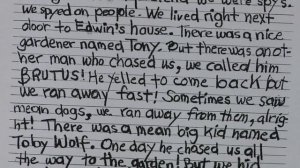 we spyed on people. We lived right next
door to Edwin's house. There was a nice
gardener named Tony. But there was anot-
her man who chased us, we called him
BRUTUS! He yelled to come back but
we ran away fast! Sometimes we saw
mean dogs, we ran away from them, alrig-
ht! There was a mean big kid named
Toby Wolf. One day he chased us all
the way to the garden! But we hid